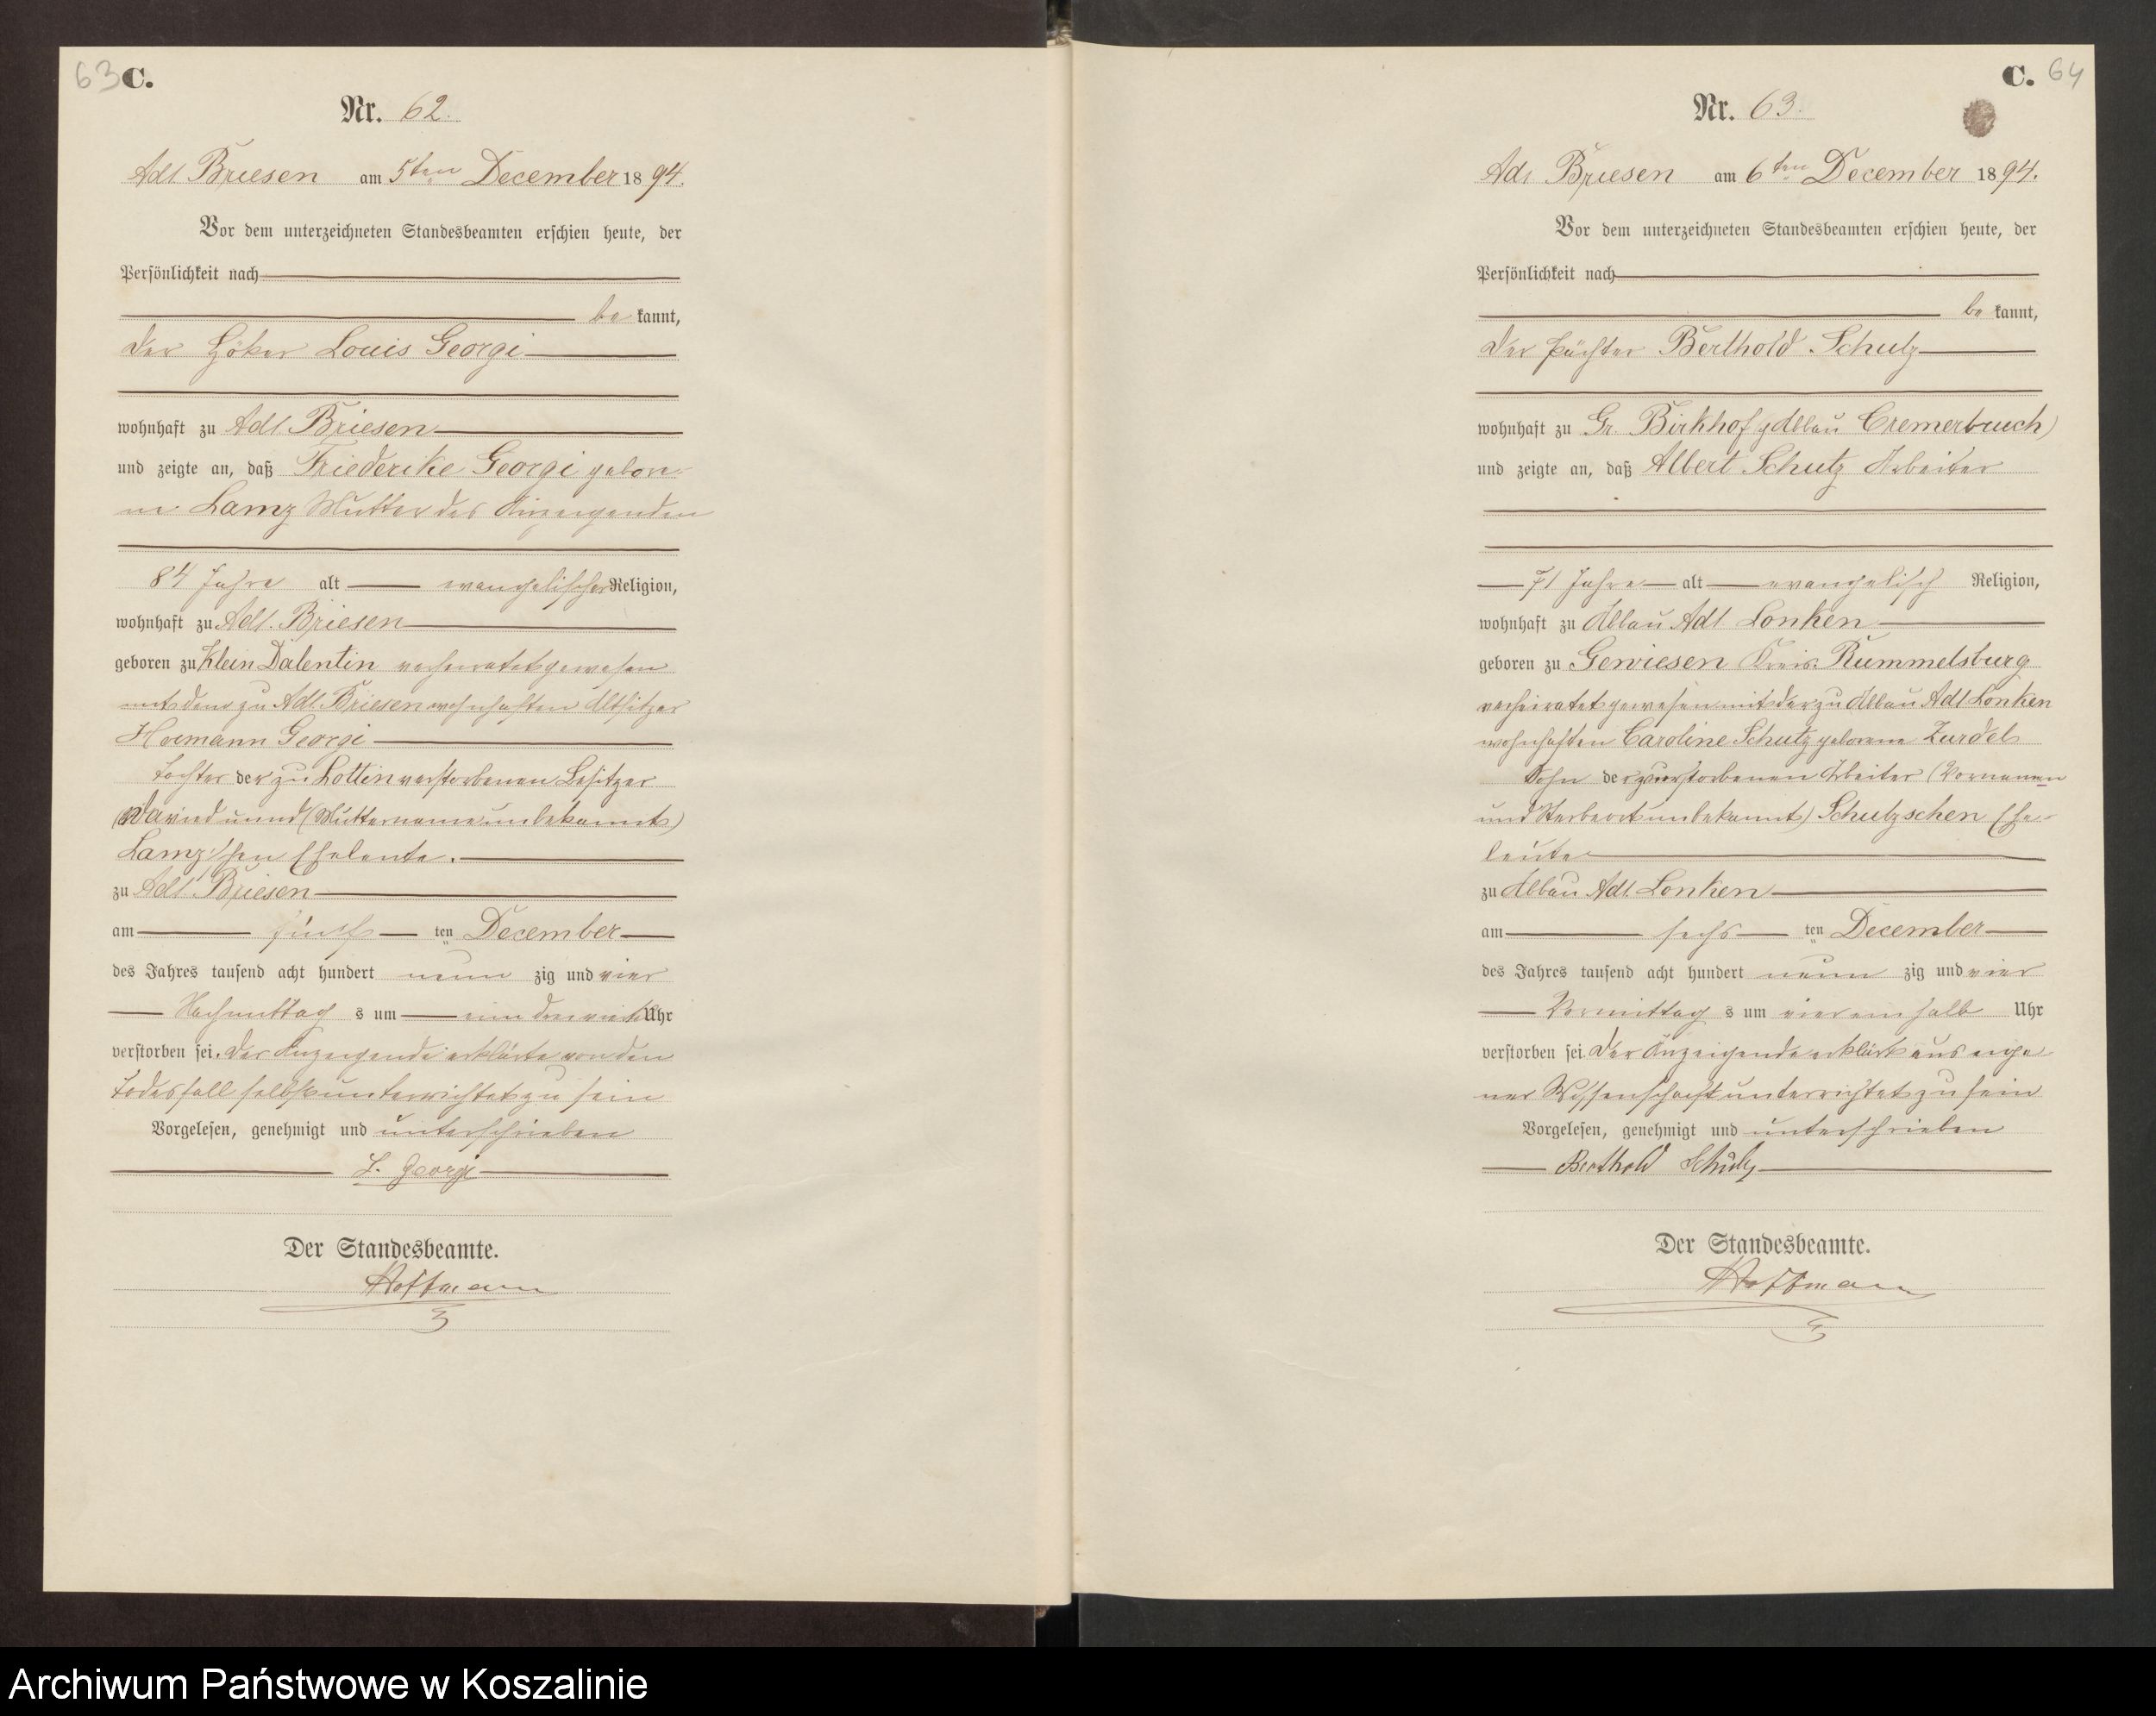 63 C.
Nr. 62.
Adl Briesen am 5ten December 1894.
Vor dem unterzeichneten Standesbeamten erschien heute, der
Persönlichkeit nach
bekannt,
der Höker Louis Georgi
wohnhaft zu Adl. Briesen
und zeigte an, daß Friederike Georgi gebore-
ne Lamz Mutter des Anzeigenden
84 Jahre alt evangelischer Religion,
wohnhaft zu Adl. Briesen
geboren zu Klein Dalentin verheiratet gewesen
mit dem zu Adl. Briesen wohnhaften Altsitzer
Hermann Georgi
Tochter der zu Lottin verstorbenen Besitzer
David unnd (Muttername unbekannt)
Lamz'schen Eheleute.
zu Adl. Briesen
am fünf ten December
des Jahres tausend acht hundert neun zig und vier
Nachmittags um ein dreiviertel Uhr
verstorben sei. Der Anzeigende erklärte von den
Todesfall selbst unterrichtet zu sein
Vorgelesen, genehmigt und unterschrieben
L. Georgi
Der Standesbeamte.
Hoffmann
C. 64
Nr. 63.
Adl Briesen am 6ten December 1894.
Vor dem unterzeichneten Standesbeamten erschien heute, der
Persönlichkeit nach
bekannt,
der Pächter Berthold Schulz
wohnhaft zu Gr. Birkhof (Abbau Cremerbruch)
und zeigte an, daß Albert Schulz Arbeiter
71 Jahre alt evangelisch Religion,
wohnhaft zu Abbau Adl. Lonken
geboren zu Gewiesen Kreis Rummelsburg
verheiratet gewesen mit der zu Abbau Adl Lonken
wohnhaften Caroline Schulz geborene Zurdel
Sohn der verstorbenen Arbeiter (Vornamen
und Sterbeort unbekannt) Schulzschen Ehe-
leute
zu Abbau Adl. Lonken
am sechs ten December
des Jahres tausend acht hundert neun zig und vier
Vormittags um vier ein halb Uhr
verstorben sei. Der Anzeigende erklärt aus eige
ner Wissenschaft unterrichtet zu sein
Vorgelesen, genehmigt und unterschrieben
Berthold Schulz
Der Standesbeamte.
Hoffmann
Archiwum Państwowe w Koszalinie